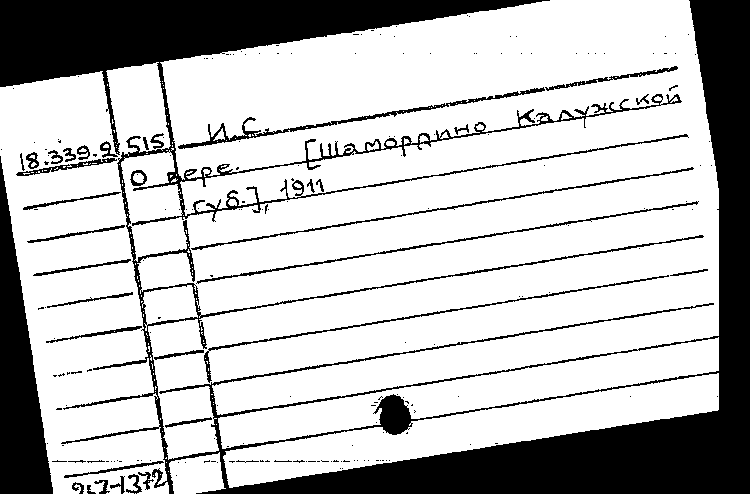 18.339.9.515 И.С.
О вере. [Шамордино Калужской
губ.], 1911